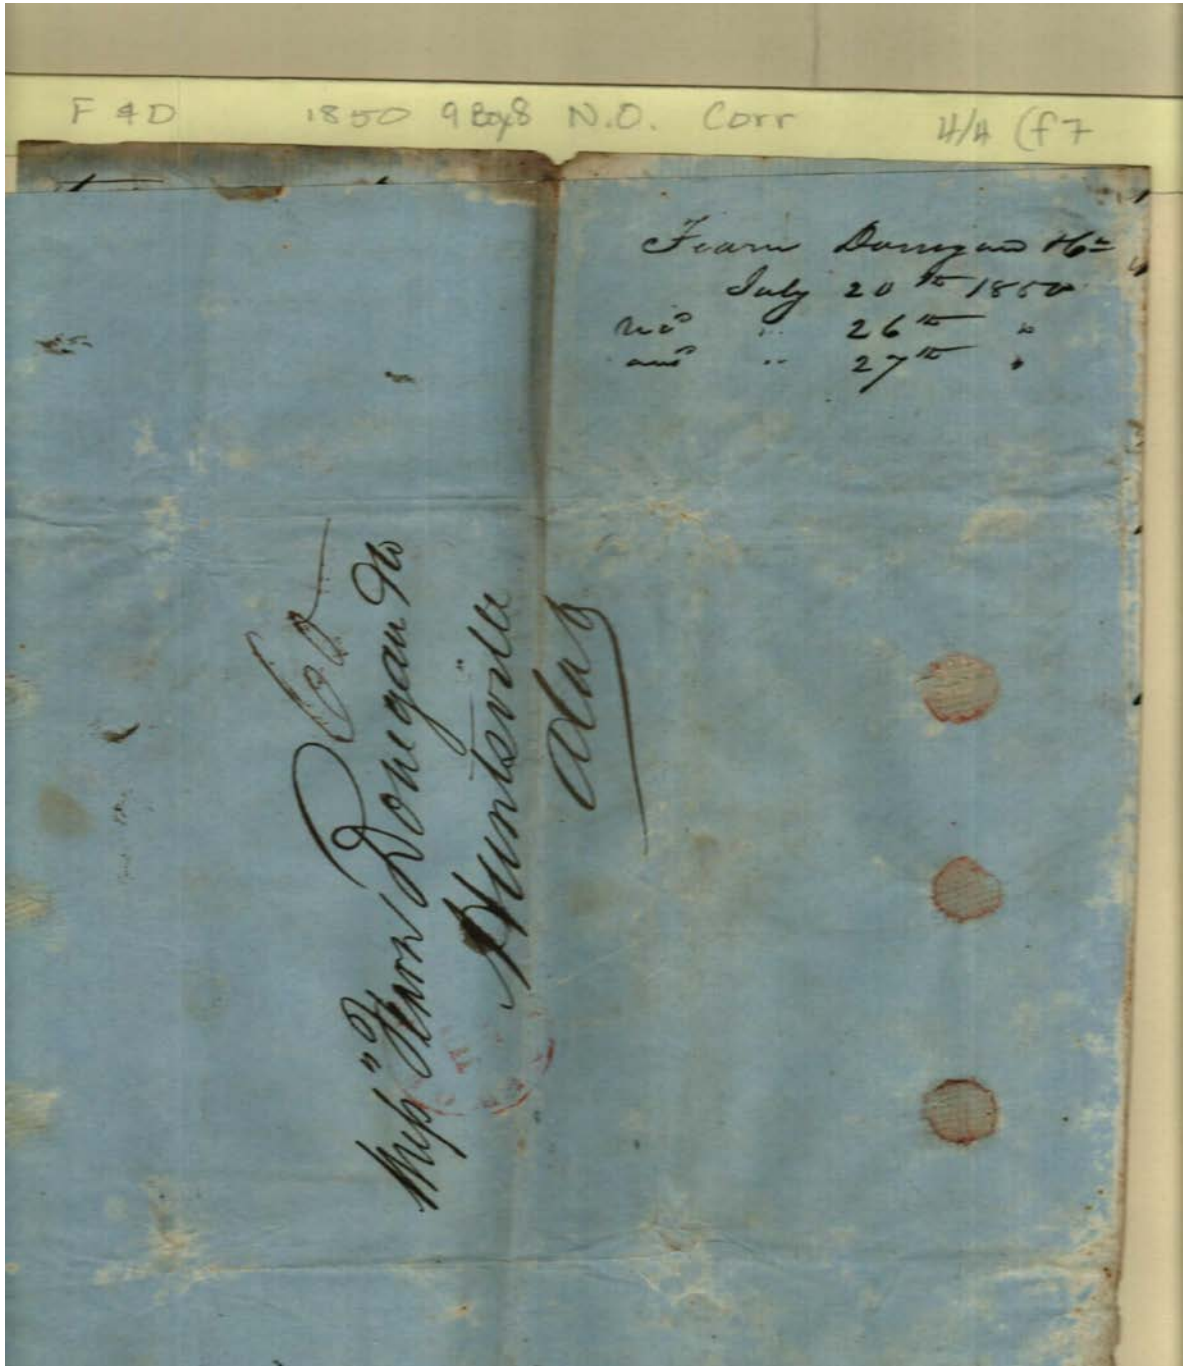 F & D 1850 9 Box 8 N.O. Corr 4/4 (f7
Fearn Donegan & Co
July 20th 1850
recd " 26th "
ansd " 27th "
Messrs Fearn Donegan & Co
Huntsville
Ala